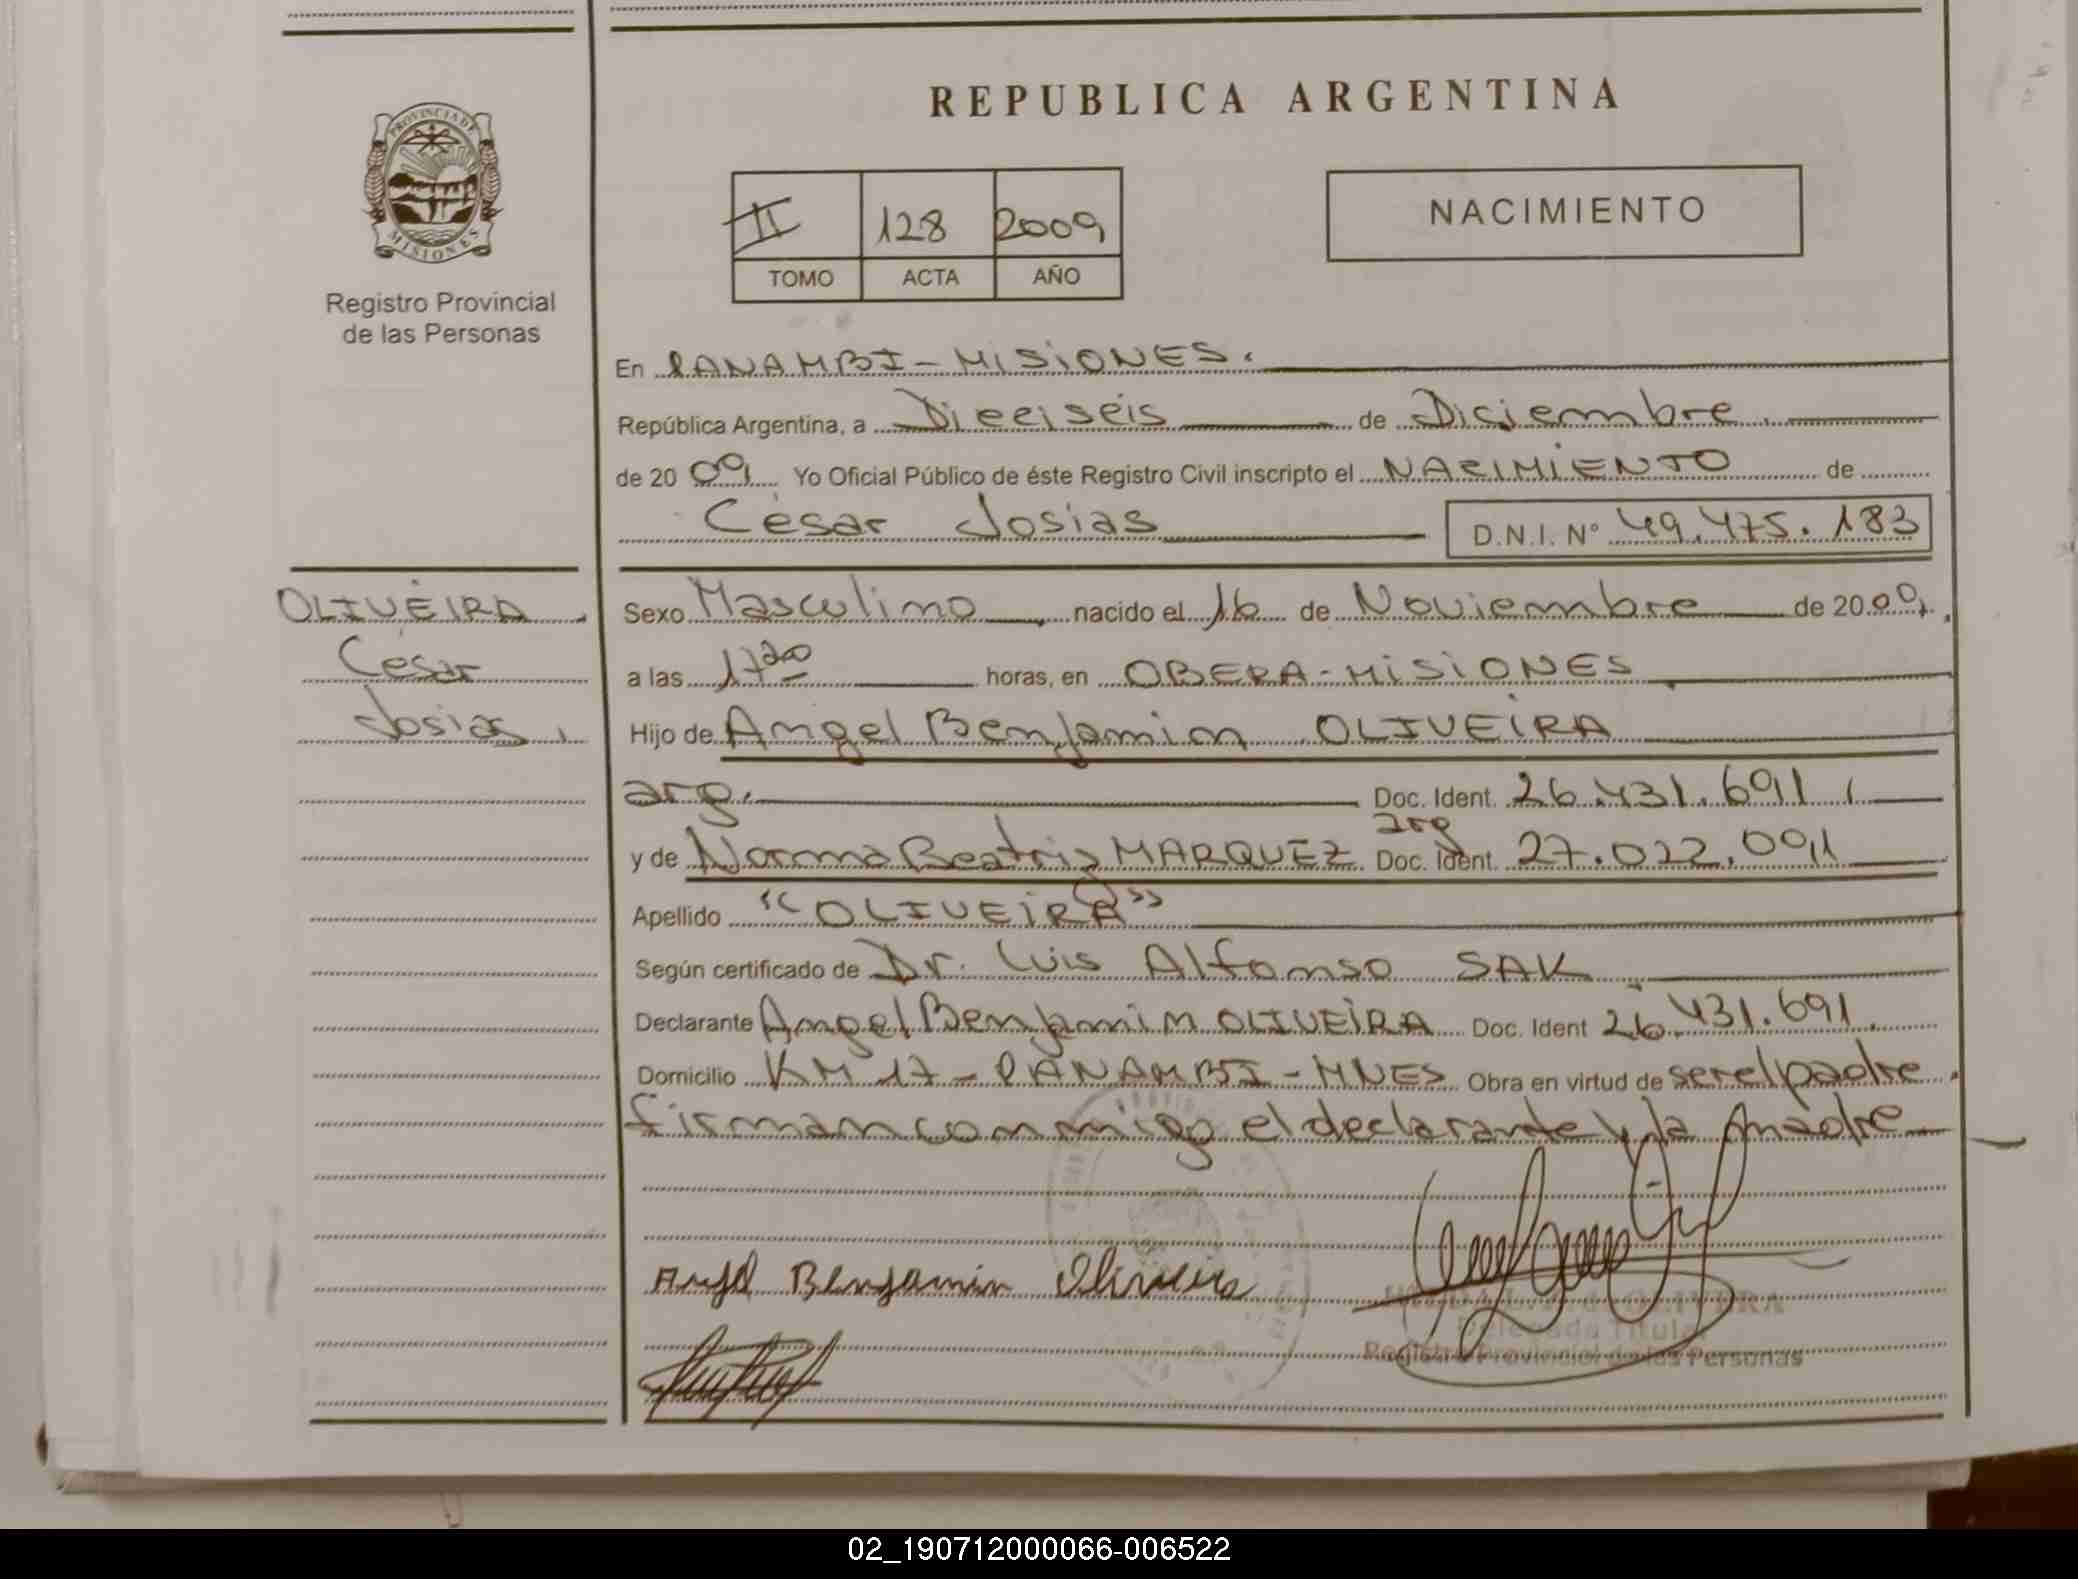 REPUBLICA ARGENTINA
PROVINCIA DE
MISIONES
Registro Provincial
de las Personas
II 128 2009
TOMO ACTA AÑO
NACIMIENTO
En PANAMBI - MISIONES.
República Argentina, a Dieciseis de Diciembre
de 20 09 Yo Oficial Público de éste Registro Civil inscripto el NACIMIENTO de
César Josias D.N.I. N° 49.475.183
OLIVEIRA
César
Josias
Sexo Masculino nacido el 16 de Noviembre de 20 09
a las 17 20 horas, en OBERA - MISIONES
Hijo de Angel Benjamin OLIVEIRA
arg. Doc. Ident. 26.431.691
y de Norma Beatriz MARQUEZ arg Doc. Ident. 27.022.091
Apellido "OLIVEIRA"
Según certificado de Dr. Luis Alfonso SAK
Declarante Angel Benjamin OLIVEIRA Doc. Ident 26.431.691
Domicilio KM 17 - PANAMBI - MNES Obra en virtud de ser el padre.
firman conmigo el declarante y la madre
Angel Benjamin Oliveira
OLIVERA
Delegada Titular
Registro Provincial de las Personas
02_190712000066-006522